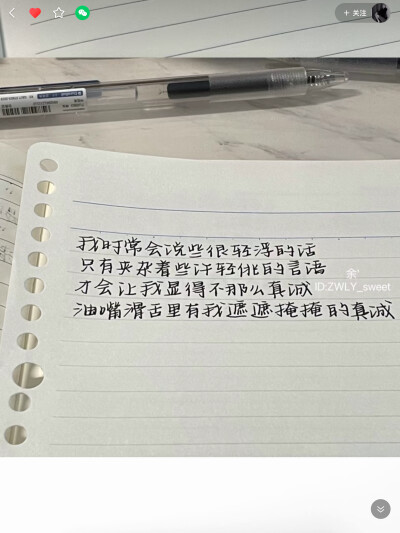 + 关注
我时常会说些很轻浮的话
只有夹杂着些许轻佻的言语
才会让我显得不那么真诚
油嘴滑舌里有我遮遮掩掩的真诚
余
ID:ZWLY_sweet